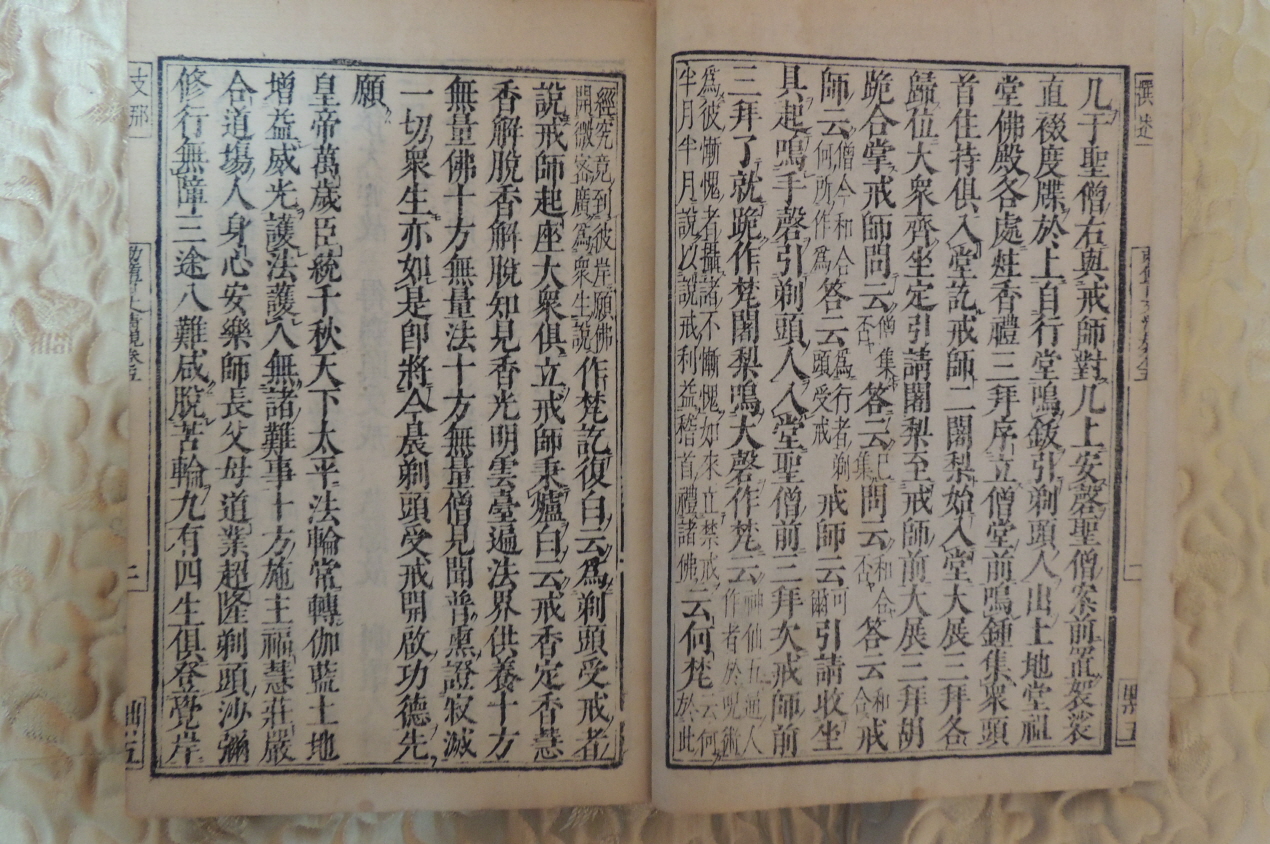 几于聖僧右與戒師對几上安磬聖僧案前置袈裟
直裰度牒於上自行堂鳴鈸引剃頭人出土地堂祖
堂佛殿各處炷香禮三拜序立僧堂前鳴鍾集衆頭
首住持俱入堂訖戒師二闍梨始入堂大展三拜各
歸位大衆齊坐定引請闍梨至戒師前大展三拜胡
跪合掌戒師問云僧集否答云為行者剃已集問云和合否答云和合戒
師云僧今和合何所作為答云為行者剃頭受戒戒師云可爾引請收坐
具起鳴手磬引剃頭人入堂聖僧前三拜次戒師前
三拜了就跪作梵闍梨鳴大磬作梵云神仙五通人作者於呪術
為彼慚愧者攝諸不慚愧如來立禁戒半月半月說以說戒利益稽首禮諸佛云何梵云何於此
經究竟到彼岸願佛開微密廣為衆生說作梵訖復白云為剃頭受戒者
說戒師起座大衆俱立戒師秉爐白云戒香定香慧
香解脫香解脫知見香光明雲臺遍法界供養十方
無量佛十方無量法十方無量僧見聞普熏證寂滅
一切衆生亦如是即將今晨剃頭受戒開啟功德先
願
皇帝萬歲臣統千秋天下太平法輪常轉伽藍土地
增益威光護法護人無諸難事十方施主福慧莊嚴
合道場人身心安樂師長父母道業超隆剃頭沙彌
修行無障三途八難咸脫苦輪九有四生俱登覺岸
支那